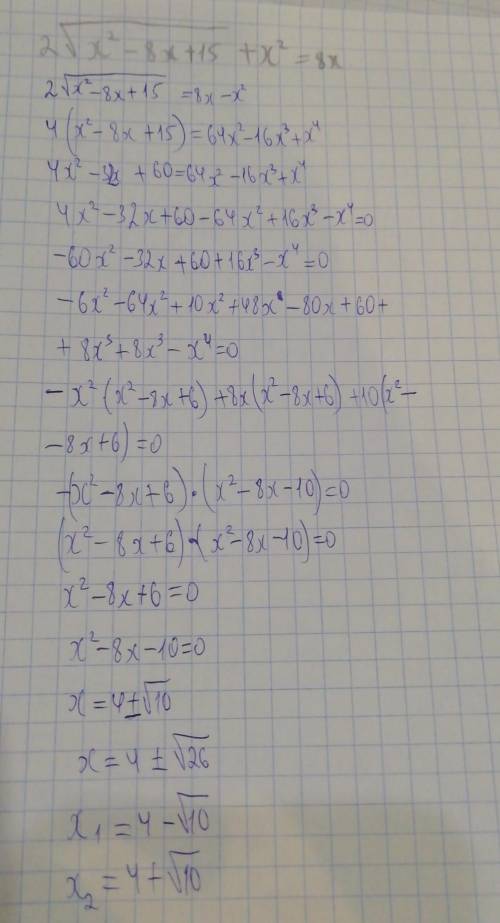 2√(x² - 8x + 15) + x² = 8x
2√(x² - 8x + 15) = 8x - x²
4(x² - 8x + 15) = 64x² - 16x³ + x⁴
4x² - 32x + 60 = 64x² - 16x³ + x⁴
4x² - 32x + 60 - 64x² + 16x³ - x⁴ = 0
-60x² - 32x + 60 + 16x³ - x⁴ = 0
-6x² - 64x² + 10x² + 48x - 80x + 60 +
+ 8x³ + 8x³ - x⁴ = 0
- x²(x² - 8x + 6) + 8x(x² - 8x + 6) + 10(x² -
- 8x + 6) = 0
-(x² - 8x + 6) · (x² - 8x - 10) = 0
(x² - 8x + 6) · (x² - 8x - 10) = 0
x² - 8x + 6 = 0
x² - 8x - 10 = 0
x = 4 ± √10
x = 4 ± √26
x₁ = 4 - √10
x₂ = 4 + √10